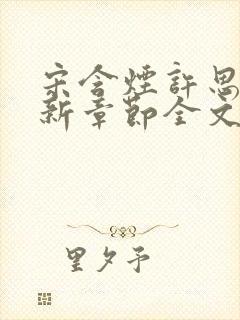 宋含煙許思
新章節全文
里夕予